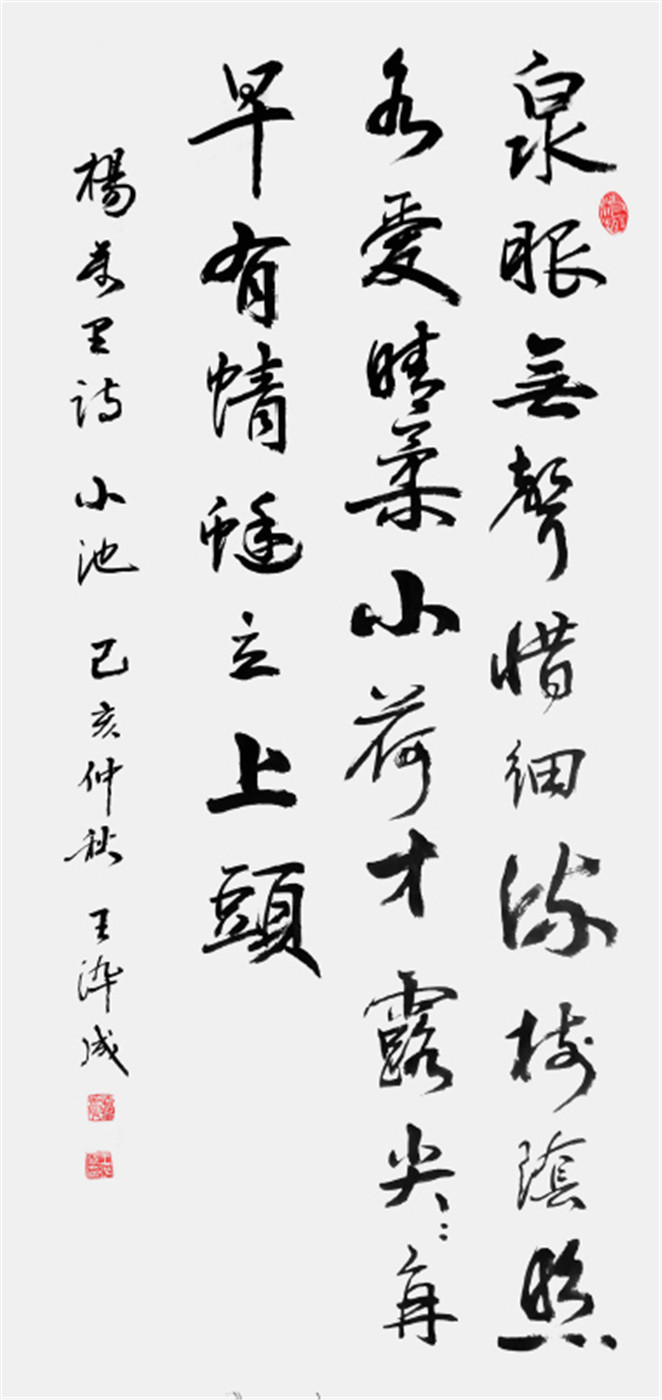 泉眼無聲惜細流樹陰照
水愛晴柔小荷才露尖〻角
早有蜻蜓立上頭
楊萬里詩 小池 己亥仲秋 王成